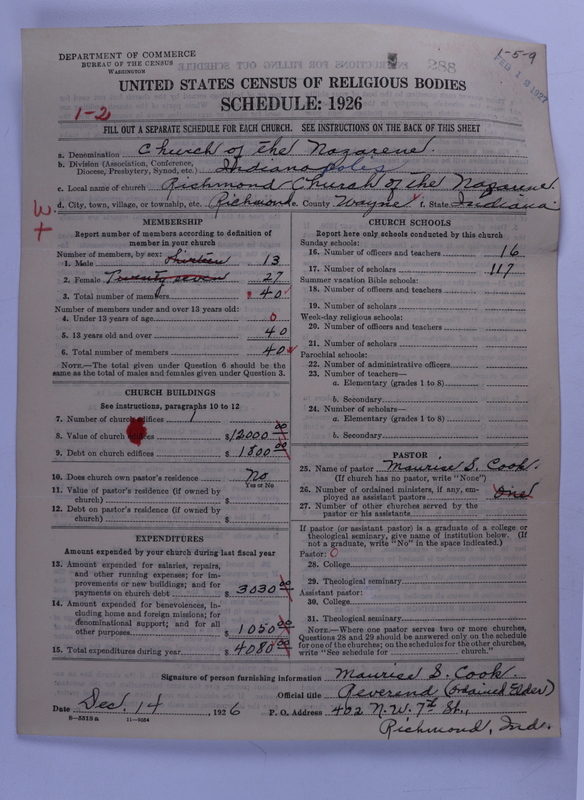 DEPARTMENT OF COMMERCE
BUREAU OF THE CENSUS
WASHINGTON
1-5-9
UNITED STATES CENSUS OF RELIGIOUS BODIES
SCHEDULE: 1926
1-2
FILL OUT A SEPARATE SCHEDULE FOR EACH CHURCH. SEE INSTRUCTIONS ON THE BACK OF THIS SHEET
a. Denomination Church of the Nazarene.
b. Division (Association, Conference, Diocese, Presbytery, Synod, etc.) Indianapolis
c. Local name of church Richmond Church of the Nazarene.
d. City, town, village, or township, etc. Richmond e. County Wayne f. State Indiana
MEMBERSHIP
Report number of members according to definition of
member in your church
Number of members, by sex:
1. Male Thirteen 13
2. Female Twenty seven 27
3. Total number of members 40
Number of members under and over 13 years old:
4. Under 13 years of age 0
5. 13 years old and over 40
6. Total number of members 40
NOTE.—The total given under Question 6 should be the
same as the total of males and females given under Question 3.
CHURCH BUILDINGS
See instructions, paragraphs 10 to 12
7. Number of church edifices 1
8. Value of church edifices $12000 00
9. Debt on church edifices $1800 00
10. Does church own pastor's residence No
Yes or No
11. Value of pastor's residence (if owned by
church) $
12. Debt on pastor's residence (if owned by
church) $
EXPENDITURES
Amount expended by your church during last fiscal year
13. Amount expended for salaries, repairs,
and other running expenses; for im-
provements or new buildings; and for
payments on church debt $3030 00
14. Amount expended for benevolences, in-
cluding home and foreign missions; for
denominational support; and for all
other purposes $1050 00
15. Total expenditures during year $4080 00
CHURCH SCHOOLS
Report here only schools conducted by this church
Sunday schools:
16. Number of officers and teachers 16
17. Number of scholars 117
Summer vacation Bible schools:
18. Number of officers and teachers
19. Number of scholars
Week-day religious schools:
20. Number of officers and teachers
21. Number of scholars
Parochial schools:
22. Number of administrative officers
23. Number of teachers—
a. Elementary (grades 1 to 8)
b. Secondary
24. Number of scholars—
a. Elementary (grades 1 to 8)
b. Secondary
PASTOR
25. Name of pastor Maurise S. Cook.
(If church has no pastor, write "None")
26. Number of ordained ministers, if any, em-
ployed as assistant pastors One
27. Number of other churches served by the
pastor or his assistants
If pastor (or assistant pastor) is a graduate of a college or
theological seminary, give name of institution below. (If
not a graduate, write "No" in the space indicated.)
Pastor: 0
28. College
29. Theological seminary
Assistant pastor:
30. College
31. Theological seminary
NOTE.—Where one pastor serves two or more churches,
Questions 28 and 29 should be answered only on the schedule
for one of the churches; on the schedules for the other churches,
write "See schedule for church."
Signature of person furnishing information Maurise S. Cook.
Official title Reverend (Ordained Elder)
Date Dec. 14, 1926 P. O. Address 402 N.W. 7th St.,
8—5518a 11—9054 Richmond, Ind.